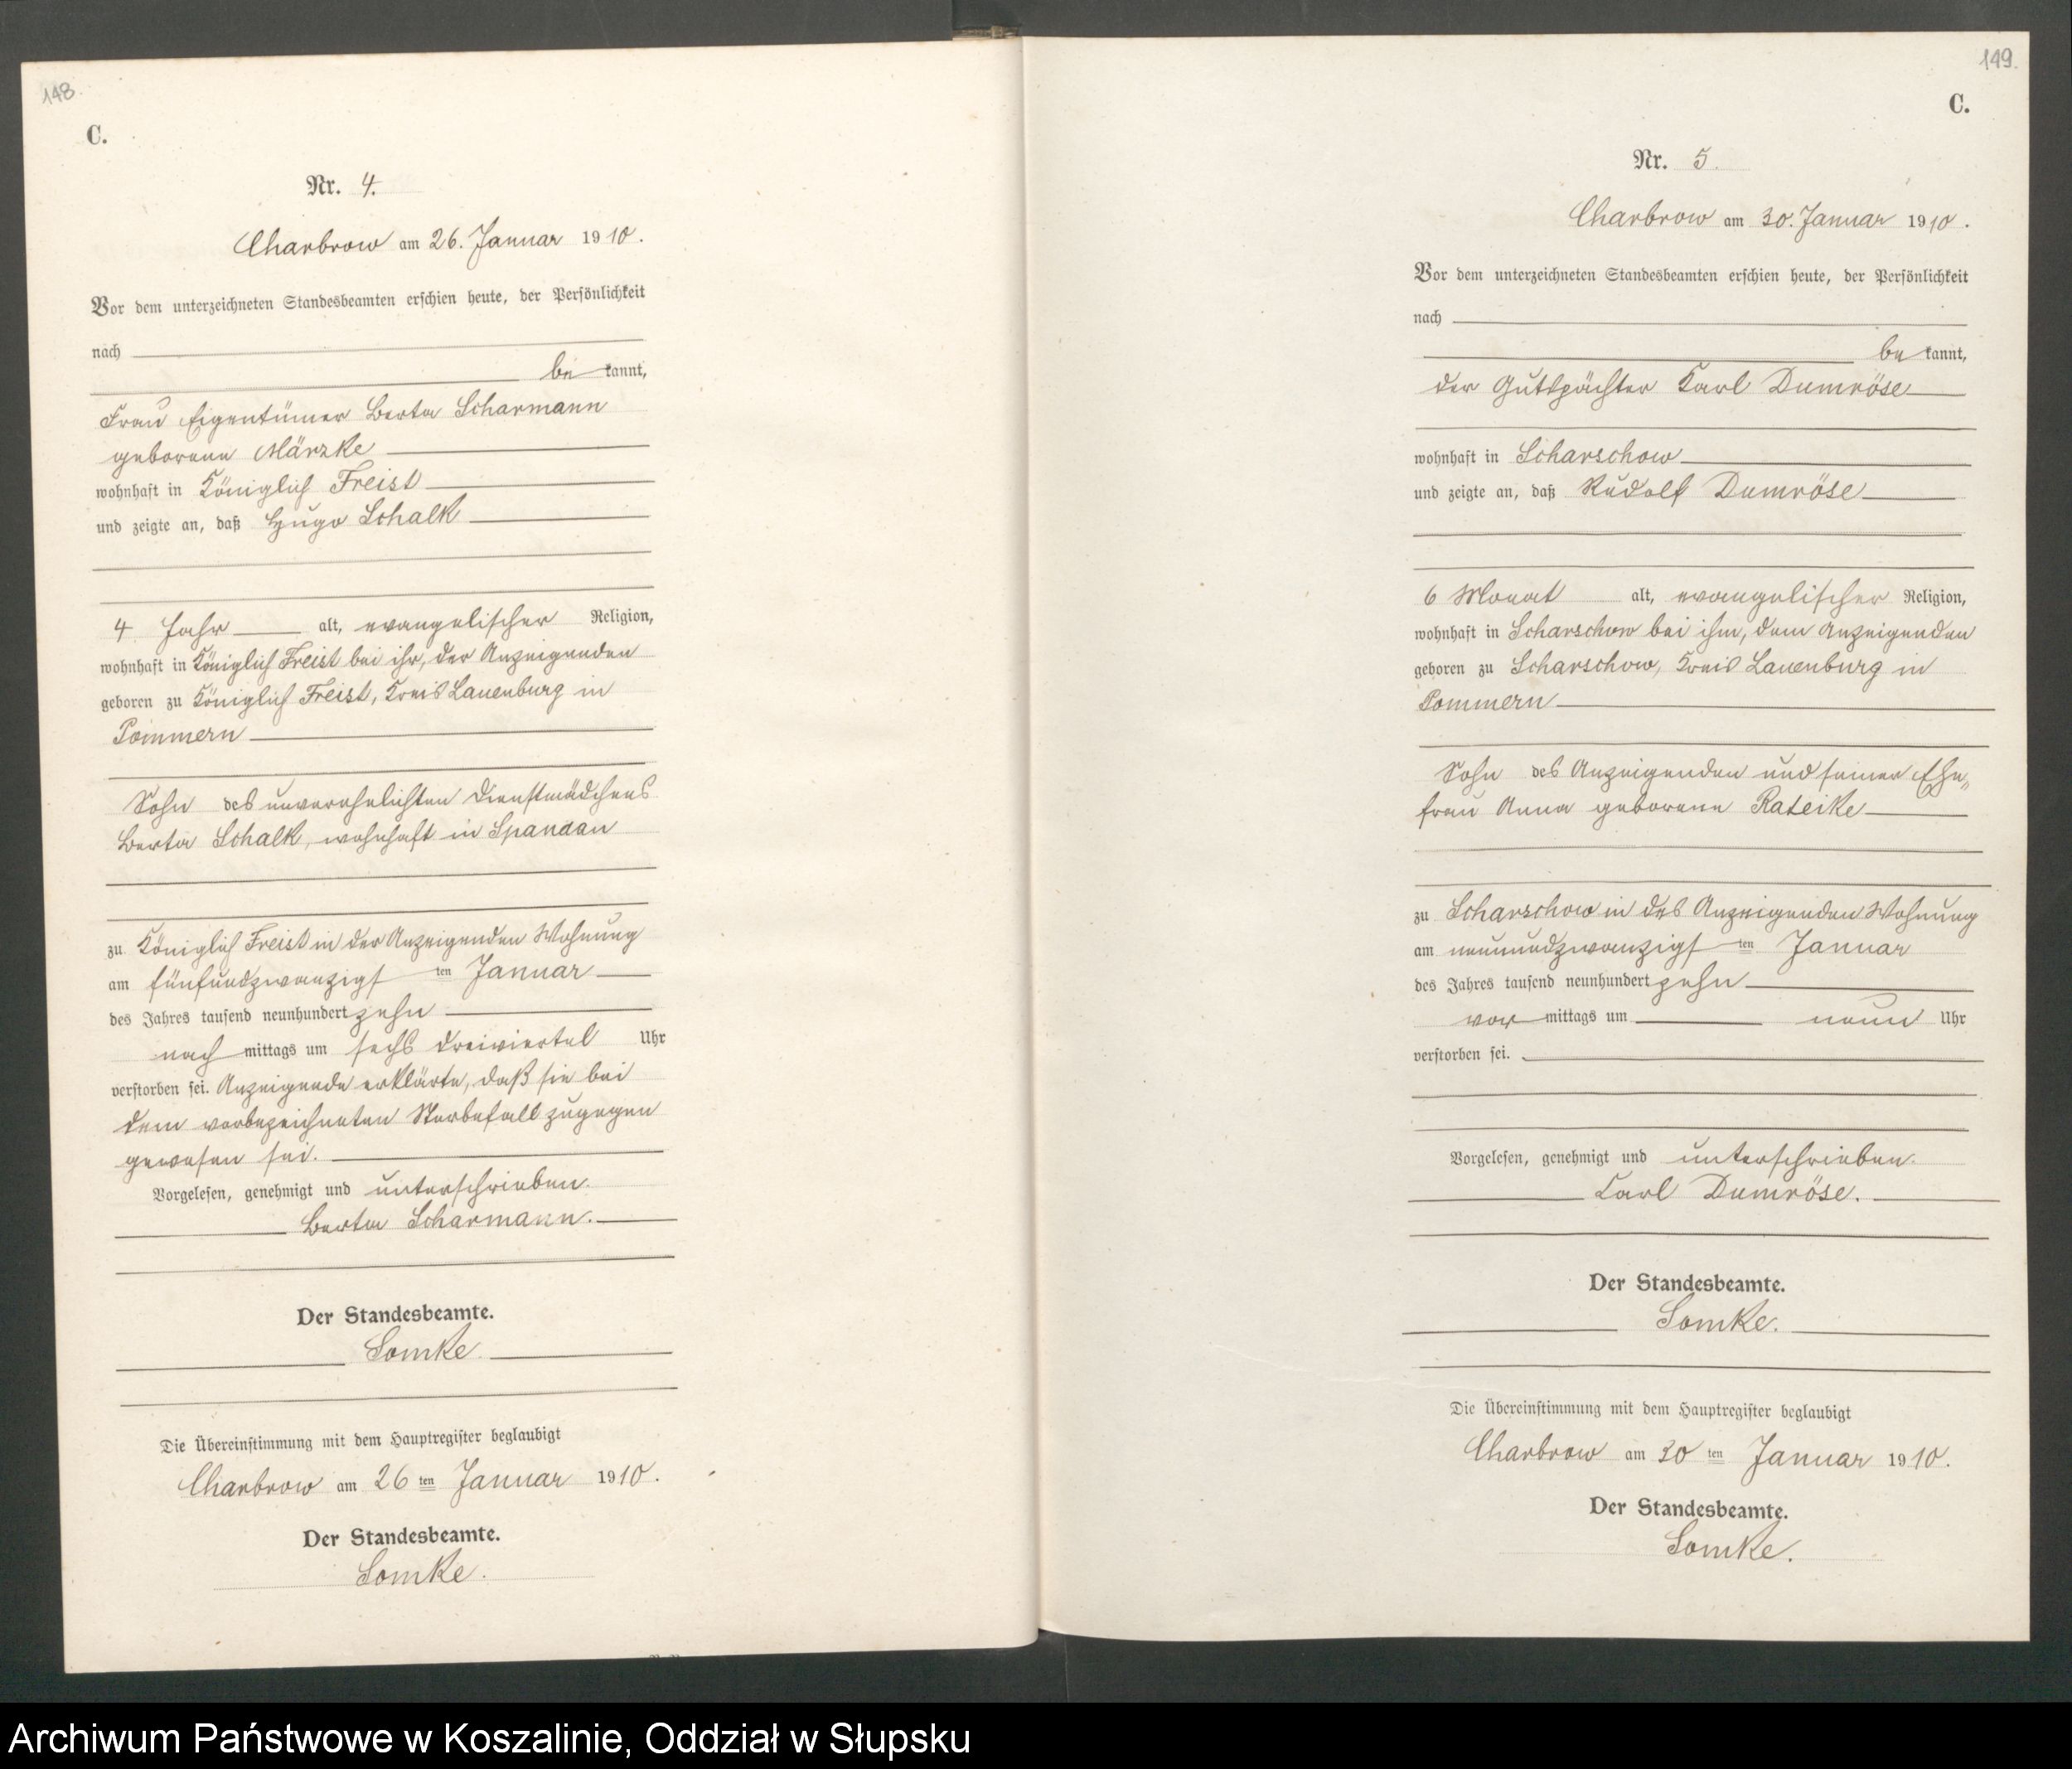 148.
C.
Nr. 4.
Charbrow am 26. Januar 1910.
Vor dem unterzeichneten Standesbeamten erschien heute, der Persönlichkeit
nach
be kannt,
Frau Eigentümer Berta Scharmann
geborene Märzke
wohnhaft in Königlich Freist
und zeigte an, daß Hugo Schalk
4 Jahr alt, evangelischer Religion,
wohnhaft in Königlich Freist bei ihr, der Anzeigenden
geboren zu Königlich Freist, Kreis Lauenburg in
Pommern
Sohn des unverehelichten Dienstmädchens
Berta Schalk, wohnhaft in Spandau
zu Königlich Freist in der Anzeigenden Wohnung
am fünfundzwanzigsten Januar
des Jahres tausend neunhundert zehn
nach mittags um sechs dreiviertel Uhr
verstorben sei. Anzeigende erklärte, daß sie bei
dem vorbezeichneten Sterbefall zugegen
gewesen sei.
Vorgelesen, genehmigt und unterschrieben.
Berta Scharmann.
Der Standesbeamte.
Lomke
Die Übereinstimmung mit dem Hauptregister beglaubigt
Charbrow am 26 ten Januar 1910.
Der Standesbeamte.
Lomke.
149.
C.
Nr. 5.
Charbrow am 30. Januar 1910.
Vor dem unterzeichneten Standesbeamten erschien heute, der Persönlichkeit
nach
be kannt,
der Gutspächter Karl Dumröse
wohnhaft in Scharschow
und zeigte an, daß Rudolf Dumröse
6 Monat alt, evangelischer Religion,
wohnhaft in Scharschow bei ihm, dem Anzeigenden
geboren zu Scharschow, Kreis Lauenburg in
Pommern
Sohn des Anzeigenden und seiner Ehe„
frau Anna geborene Rateike
zu Scharschow in des Anzeigenden Wohnung
am neunundzwanzigsten Januar
des Jahres tausend neunhundert zehn
vor mittags um neun Uhr
verstorben sei.
Vorgelesen, genehmigt und unterschrieben.
Carl Dumröse.
Der Standesbeamte.
Lomke.
Die Übereinstimmung mit dem Hauptregister beglaubigt
Charbrow am 30 ten Januar 1910.
Der Standesbeamte.
Lomke.
Archiwum Państwowe w Koszalinie, Oddział w Słupsku